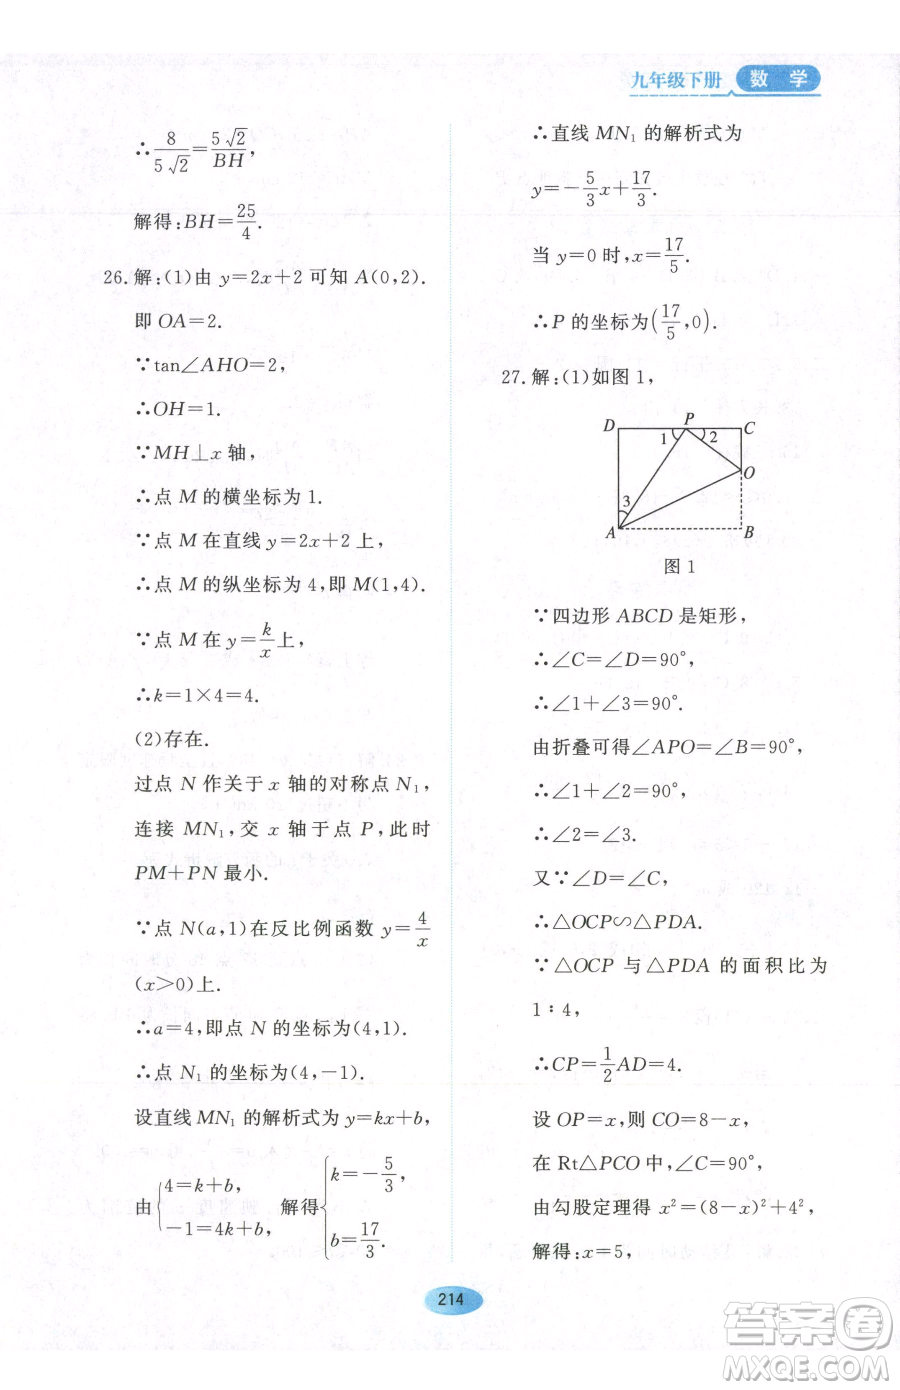 九年级下册 数 学
∴8/(5√2)=(5√2)/BH,
解得:BH=25/4.
26.解:(1)由 y=2x+2 可知 A(0,2).
即 OA=2.
∵tan∠AHO=2,
∴OH=1.
∵MH⊥x 轴,
∴点 M 的横坐标为 1.
∵点 M 在直线 y=2x+2 上,
∴点 M 的纵坐标为 4,即 M(1,4).
∵点 M 在 y=k/x 上,
∴k=1×4=4.
(2)存在.
过点 N 作关于 x 轴的对称点 N₁,
连接 MN₁,交 x 轴于点 P,此时
PM+PN 最小.
∵点 N(a,1)在反比例函数 y=4/x
(x>0)上.
∴a=4,即点 N 的坐标为(4,1).
∴点 N₁ 的坐标为(4,-1).
设直线 MN₁ 的解析式为 y=kx+b,
由{4=k+b, -1=4k+b, 解得{k=-5/3, b=17/3.
∴直线 MN₁ 的解析式为
y=-5/3x+17/3.
当 y=0 时,x=17/5.
∴P 的坐标为(17/5,0).
27.解:(1)如图 1,
D P C
1 2
O
3
A B
图 1
∵四边形 ABCD 是矩形,
∴∠C=∠D=90°,
∴∠1+∠3=90°.
由折叠可得∠APO=∠B=90°,
∴∠1+∠2=90°.
∴∠2=∠3.
又∵∠D=∠C,
∴△OCP∽△PDA.
∵△OCP 与△PDA 的面积比为
1∶4,
∴CP=1/2AD=4.
设 OP=x,则 CO=8-x,
在 Rt△PCO 中,∠C=90°,
由勾股定理得 x²=(8-x)²+4²,
解得:x=5,
214
答案圈
MXQE.COM